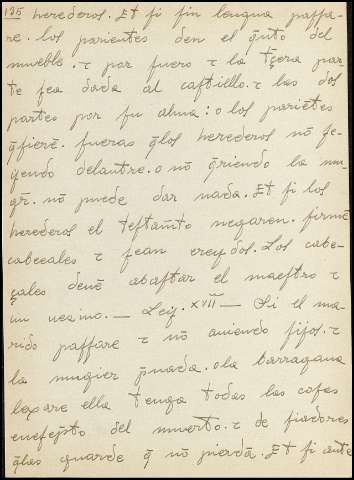 135 herederos. Et si sin lengua passa-
re. los parientes den el q̃nto del
mueble. τ por fuero τ la tc̃era par-
te sea dada al castiello. τ las dos
partes por su alma: o los pariẽtes
q̃sierẽ. fueras q̃los herederos nõ se-
yendo delantre. o nõ q̃riendo la mu-
gr̃. nõ puede dar nada. Et si los
herederos el testam̃to negaren. firmẽ
cabeçales τ sean creydos. Los cabe-
çales deuẽ abastar el maestro τ
un uezino. — Ley. XVIII — Si el ma-
rido passare τ nõ auiendo fijos. τ
la mugier p̃nnada. o la barragana
lexare ella tenga todas las cosas
enesc̃pto del muerto. τ de fiadores
q̃las guarde q̃ nõ pierdã. Et si ante